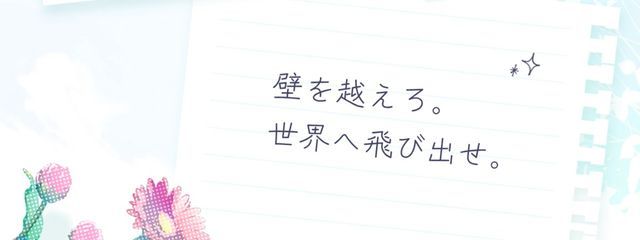 壁を越えろ。
世界へ飛び出せ。